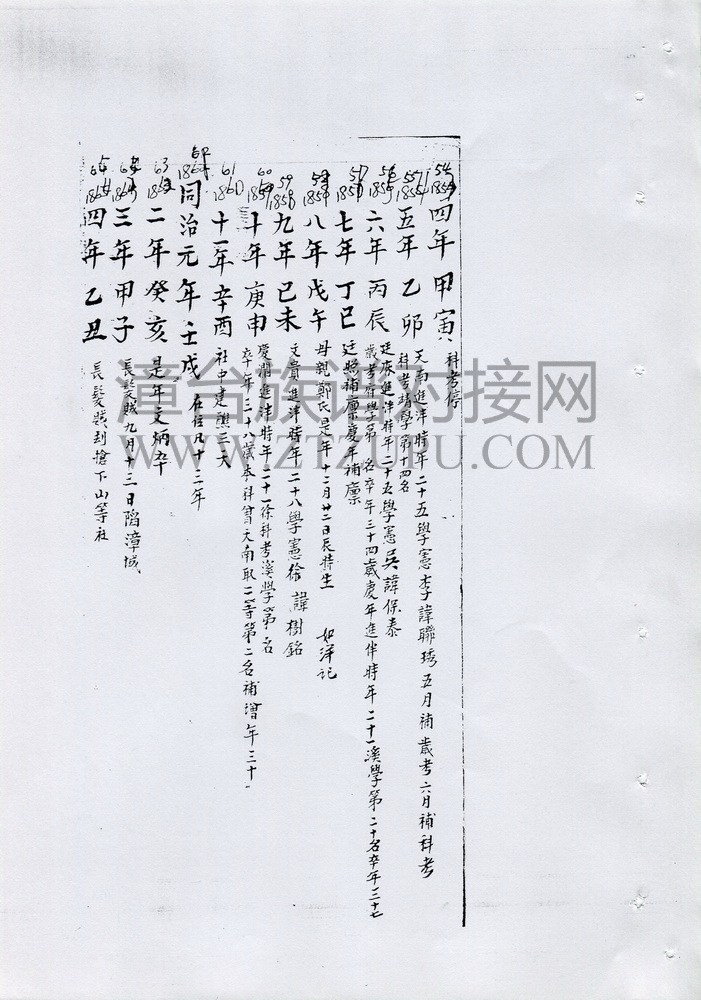 四年甲寅
科考停
天南進泮時年二十五學憲李諱聯琇五月補歲考六月補科考
五年乙卯
科考靖學第十四名
廷 進泮時年二十五學憲吳諱保泰
六年丙辰
歲考府學第 名卒年三十四歲慶年進泮時年二十一溪學第二十名卒年三十七
七年丁巳
廷照補廩慶年補廩
八年戊午
母親鄭氏是年十二月廿二日辰時生 如洋記
九年己未
文貴進泮時年二十八學憲徐諱樹銘
十年庚申
慶瀾進泮時年二十一徐科考溪學第 名
卒年三十八歲本科 天南取二等第二名補增年三十一
十一年辛酉
社中建醮三天
同治元年壬戌
在位凡十三年
二年癸亥
是年文炳卒
三年甲子
長髮賊九月十三日陷漳城
四年乙丑
長髮賊到搶下山等社
漳台族谱对接网
WWW.ZTZUPU.COM